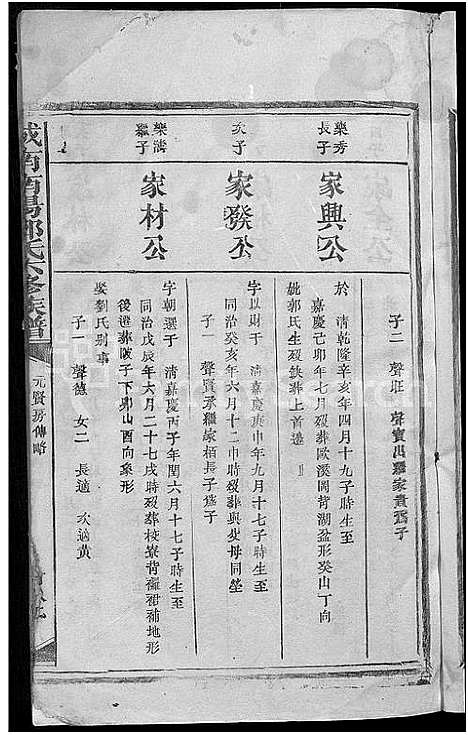 子二 聲旺 聲寶出繼家貴爲子
樂秀長子
家興公
於 清乾隆辛亥年四月十九子時生至
嘉慶己卯年七月歿葬歐溪岡背湖盆形癸山丁向
妣郭氏生歿缺葬上首邊
次子
家發公
字以財于 清嘉慶庚申年九月十七子時生至
同治癸亥年六月十二申時歿葬與父母同塋
子一 聲賢承繼家栢長子爲子
樂濤繼子
家材公
字朝選于 清嘉慶丙子年閏六月十七子時生至
同治戊辰年六月二十七戌時歿葬校寮背褲裙補地形
後遷葬陂子下卯山酉向象形
娶劉氏别事
子一 聲德 女二 長適 次適黄
南西陽郭氏六修族譜
元賢房傳略